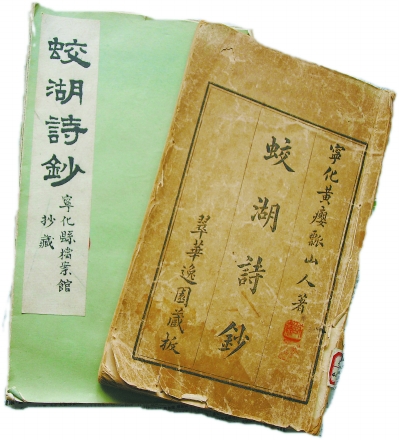 蛟湖詩鈔
寧化縣檔案館
抄藏
寧化黃癭瓢山人著
蛟湖詩鈔
翠華逸園藏板